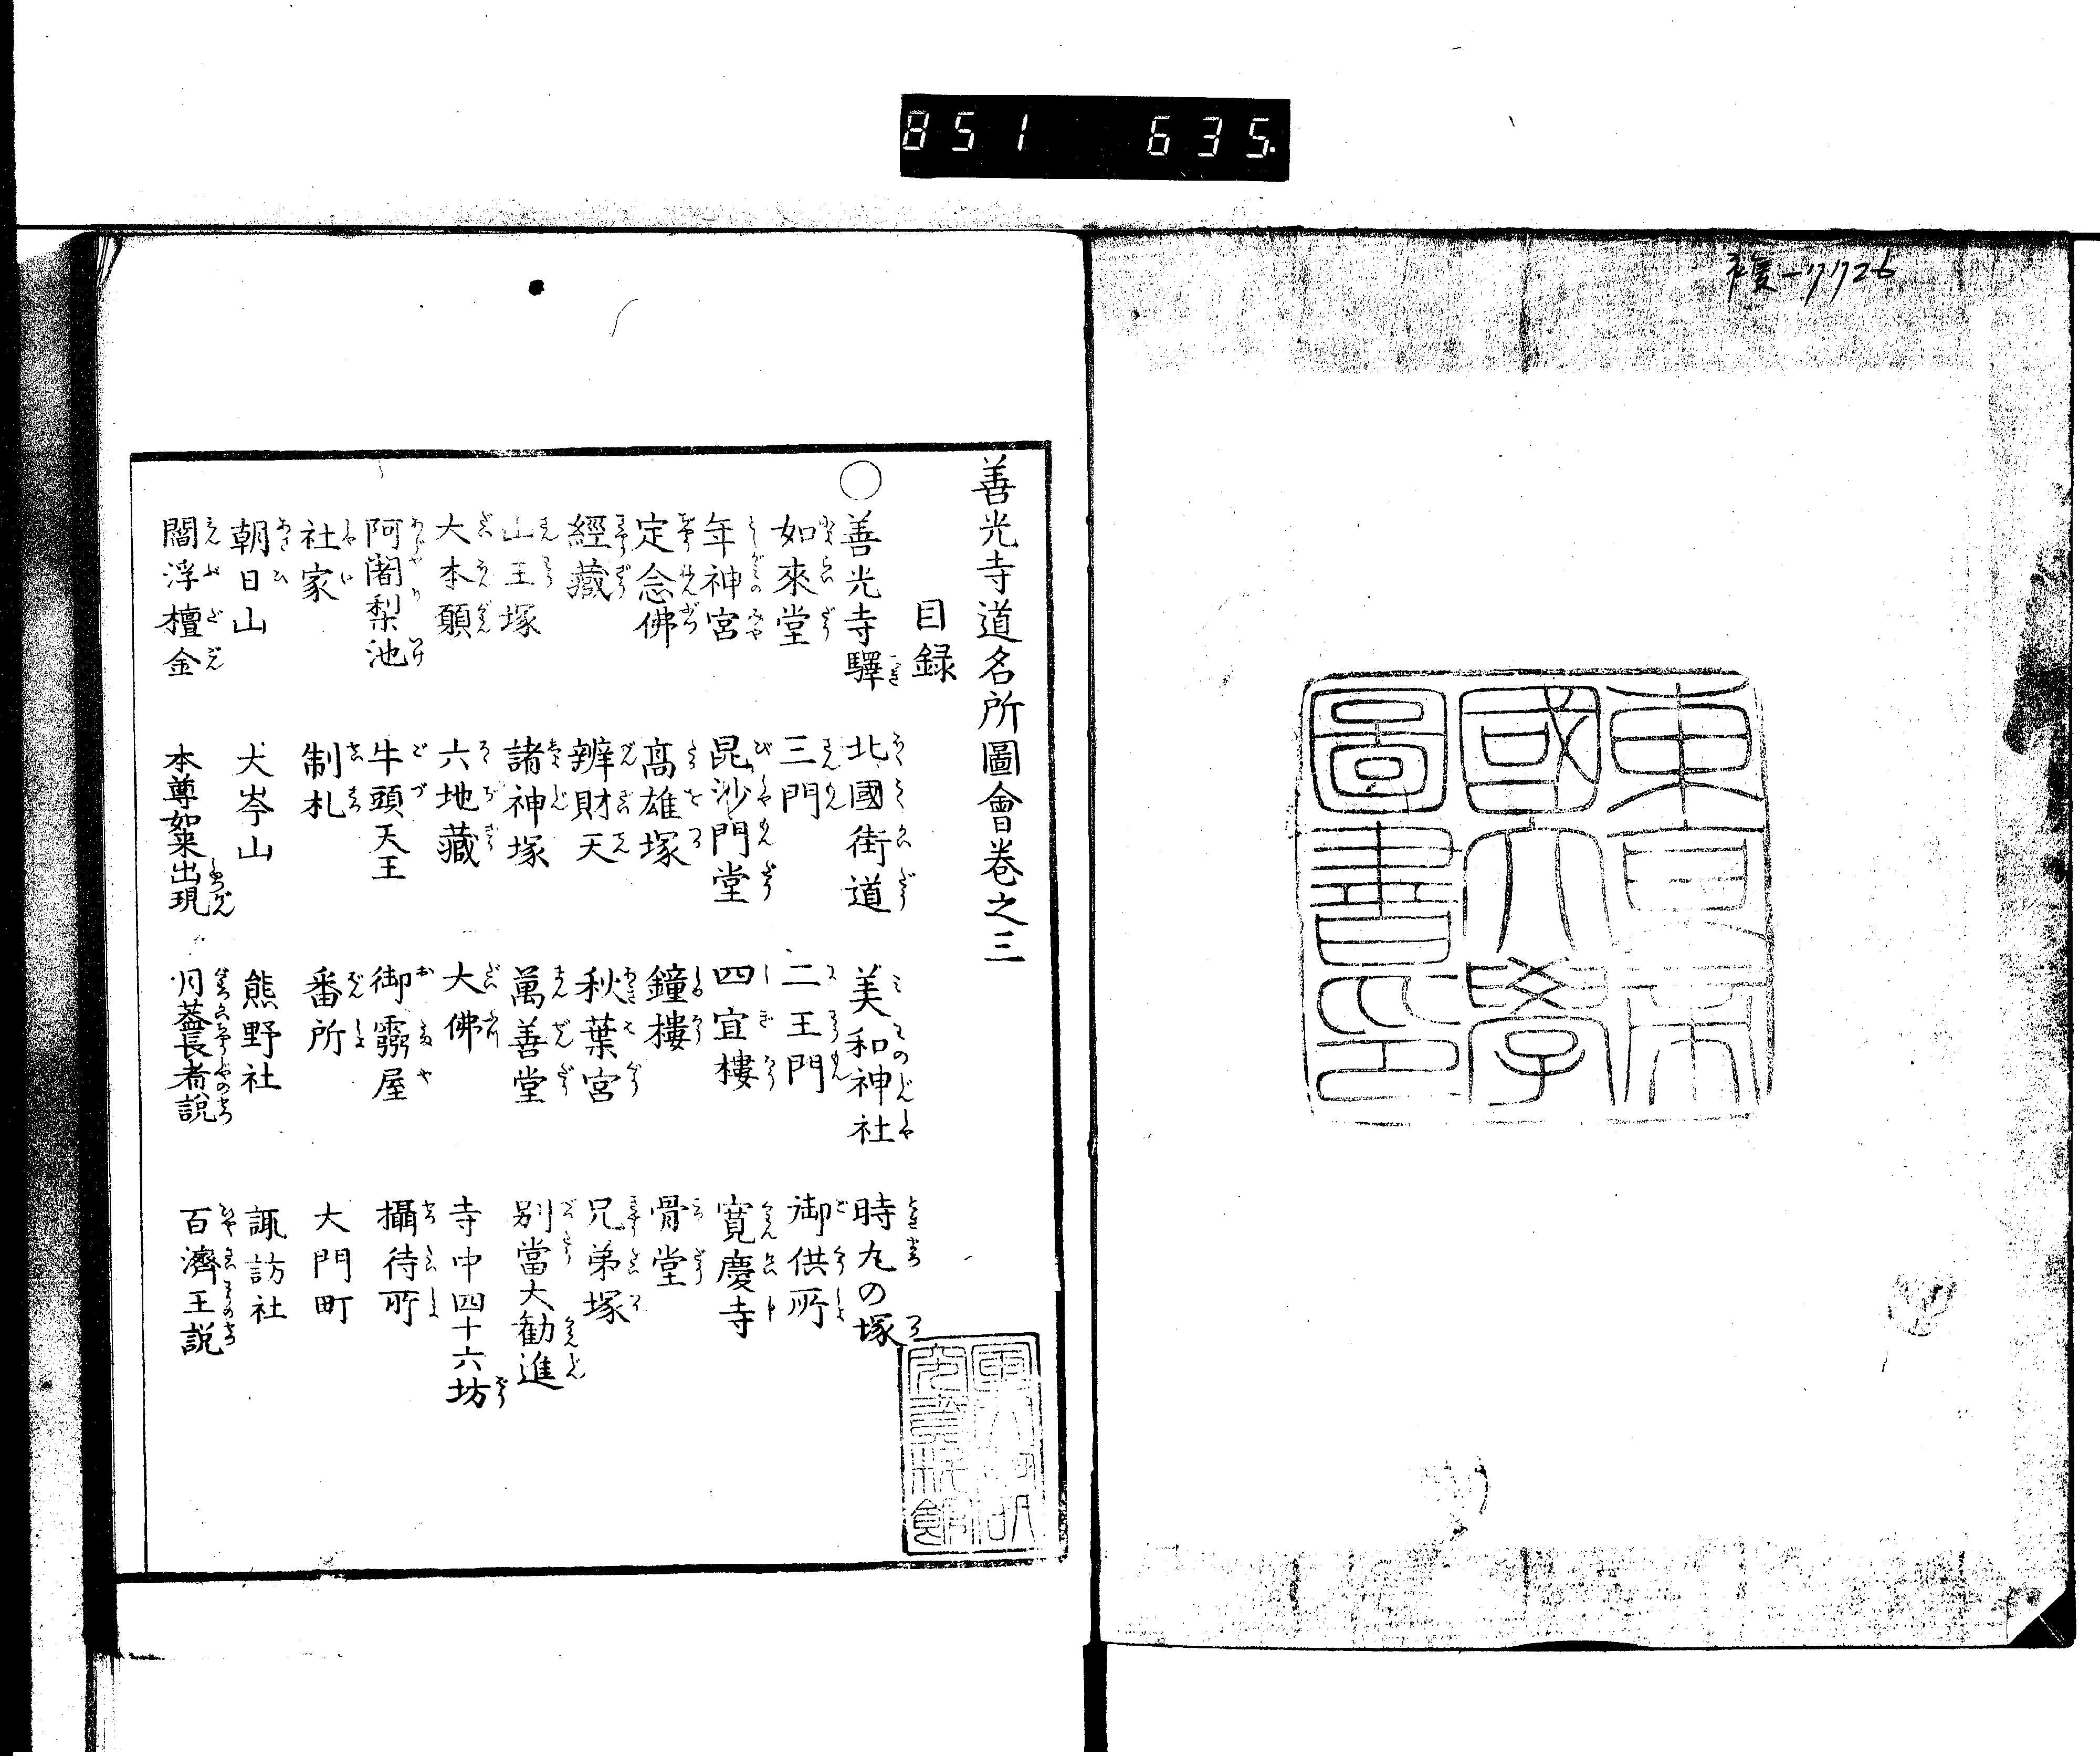 851 635.
東京帝
國大學
圖書印
善光寺道名所圖會卷之三
目録
○善光寺驛 北國街道 美和神社 時丸の塚
如來堂 三門 二王門 御供所
年神宮 毘沙門堂 四宜樓 寛慶寺
定念佛 髙雄塚 鐘樓 骨堂
經藏 辨財天 秋葉宮 兄弟塚
山王塚 諸神塚 萬善堂 別當大勧進
大本願 六地藏 大佛 寺中四十六坊
阿闍梨池 牛頭天王 御霛屋 攝待所
社家 制札 番所 大門町
朝日山 犬岑山 熊野社 諏訪社
閻浮檀金 本尊如来出現 月蓋長者説 百濟王説